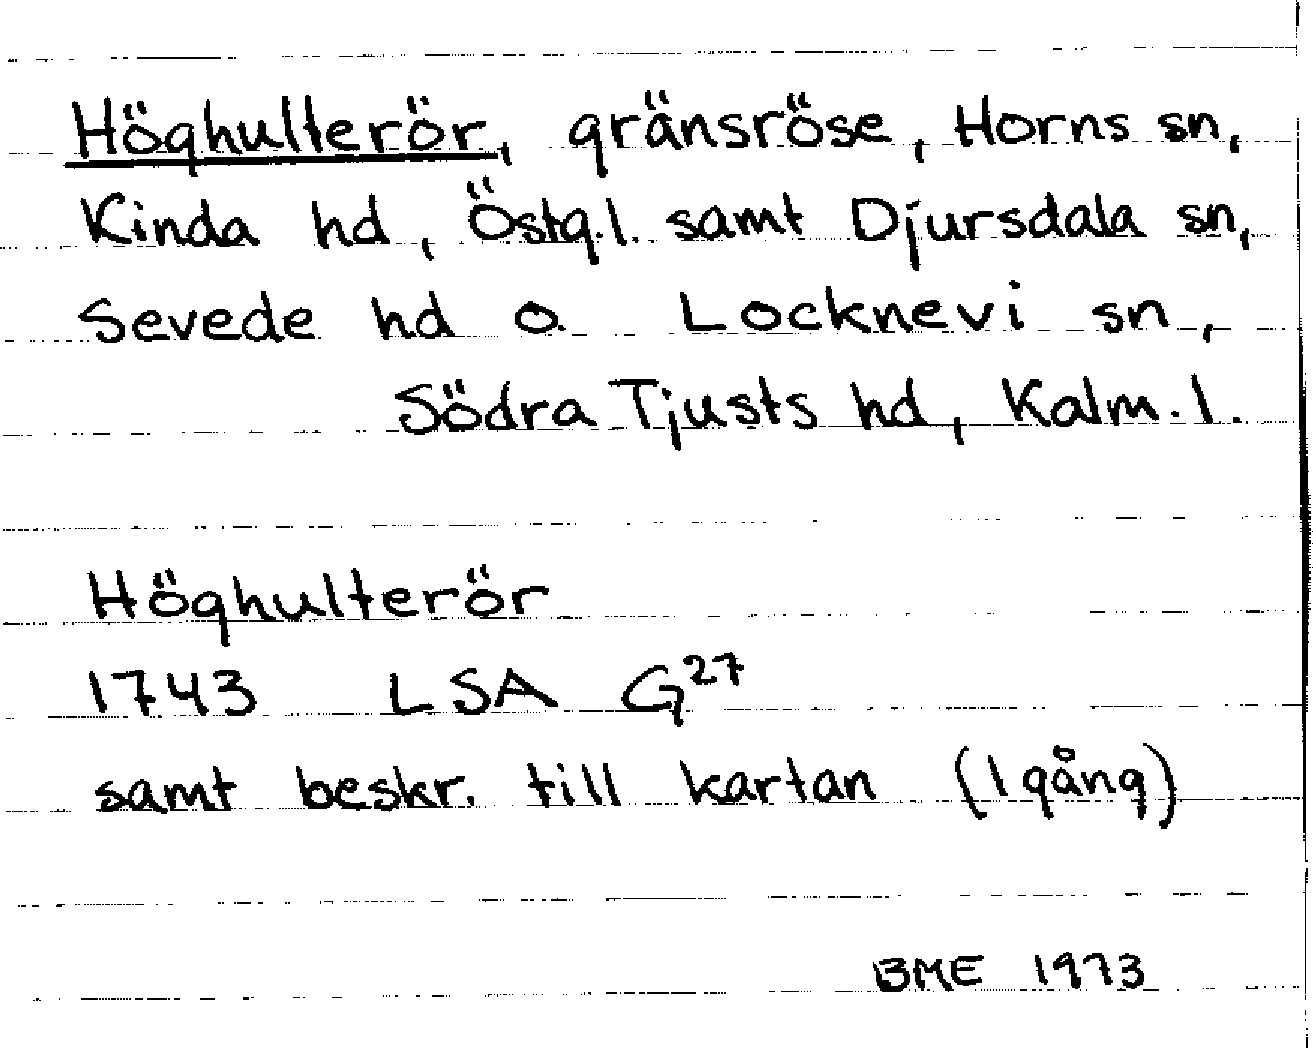 Höghulterör, gränsröse, Horns sn,
Kinda hd, Östg.l. samt Djursdala sn,
Sevede hd o. Locknevi sn,
Södra Tjusts hd, Kalm.l.
Höghulterör
1743 LSA G27
samt beskr. till kartan (1 gång)
BME 1973